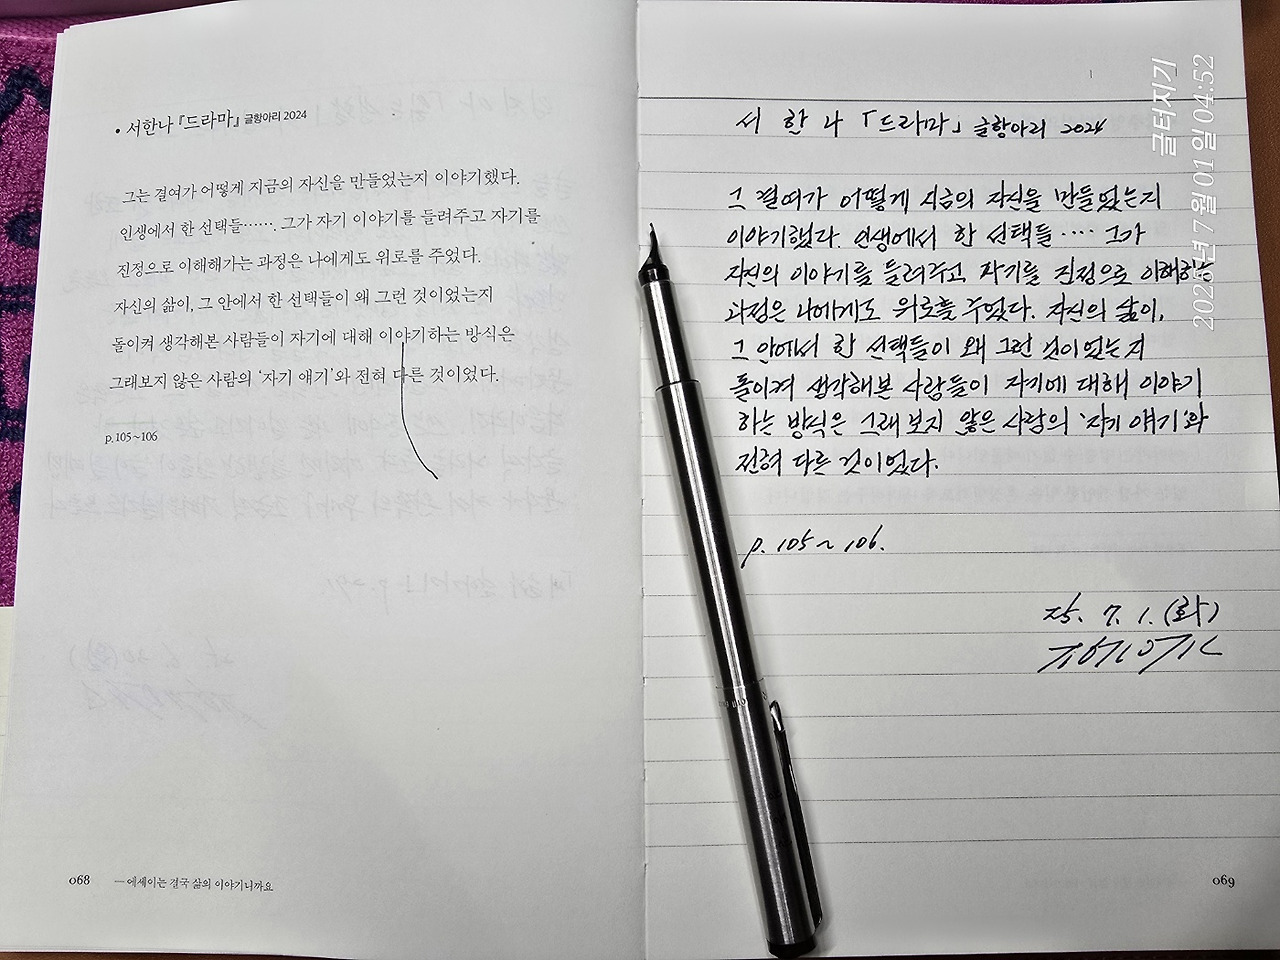 • 서한나 『드라마』 글항아리 2024
그는 결여가 어떻게 지금의 자신을 만들었는지 이야기했다.
인생에서 한 선택들……. 그가 자기 이야기를 들려주고 자기를
진정으로 이해해가는 과정은 나에게도 위로를 주었다.
자신의 삶이, 그 안에서 한 선택들이 왜 그런 것이었는지
돌이켜 생각해본 사람들이 자기에 대해 이야기하는 방식은
그래보지 않은 사람의 ‘자기 얘기’와 전혀 다른 것이었다.
p.105~106
068 — 에세이는 결국 삶의 이야기니까요
서한나 「드라마」 글항아리 2024
그 결여가 어떻게 지금의 자신을 만들었는지
이야기했다. 인생에서 한 선택들 ···· 그가
자신의 이야기를 들려주고, 자기를 진정으로 이해하는
과정은 나에게도 위로를 주었다. 자신의 삶이,
그 안에서 한 선택들이 왜 그런 것이었는지
돌이켜 생각해본 사람들이 자기에 대해 이야기
하는 방식은 그래보지 않은 사람의 '자기 얘기'와
전혀 다른 것이었다.
p. 105~106.
25. 7. 1. (화)
069
글터지기
2025년 7월 01일 04:52